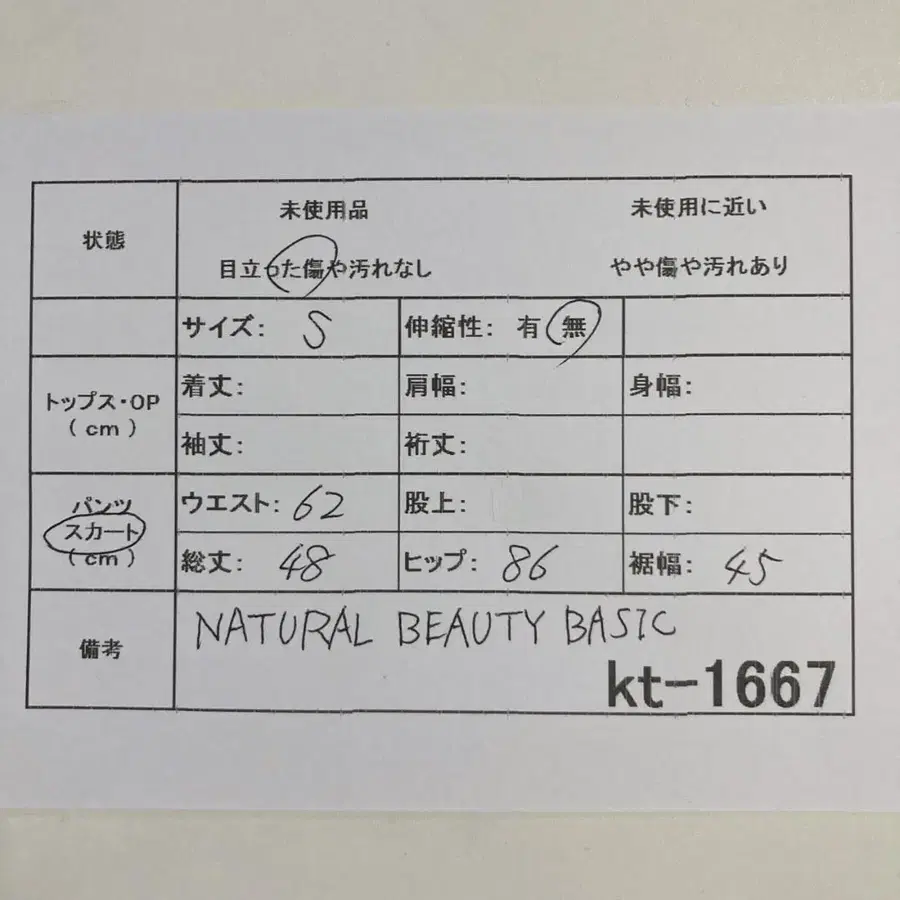 状態
未使用品 未使用に近い
目立った傷や汚れなし やや傷や汚れあり
サイズ: S 伸縮性: 有 無
トップス・OP
(cm)
着丈: 肩幅: 身幅:
袖丈: 裄丈:
パンツ
スカート
(cm)
ウエスト: 62 股上: 股下:
総丈: 48 ヒップ: 86 裾幅: 45
備考
NATURAL BEAUTY BASIC
kt-1667